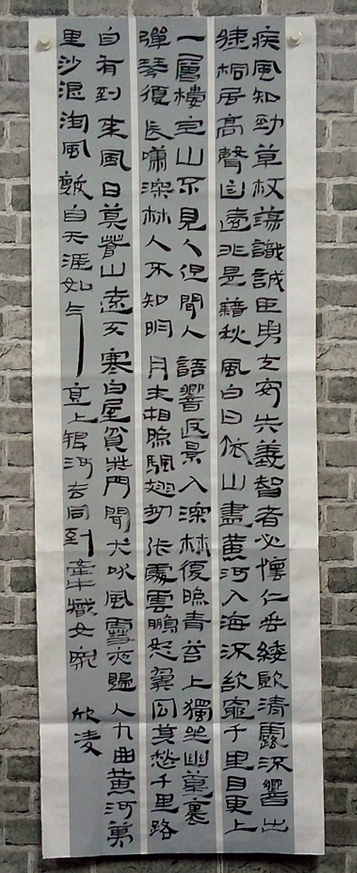 疾風知勁草板蕩識誠臣勇夫安共義智者必懷仁垂緌飲清露流響出
疏桐居高聲自遠非是藉秋風白日依山盡黃河入海流欲窮千里目更上
一層樓空山不見人但聞人語響返景入深林復照青苔上獨坐幽篁裏
彈琴復長嘯深林人不知明月來相照颿翅初張處雲鵬怒翼同莫愁千里路
自有到來風日莫蒼山遠天寒白屋貧柴門聞犬吠風雪夜歸人九曲黃河萬
里沙浪淘風簸自天涯如今直上銀河去同到牽牛織女家 欣凌